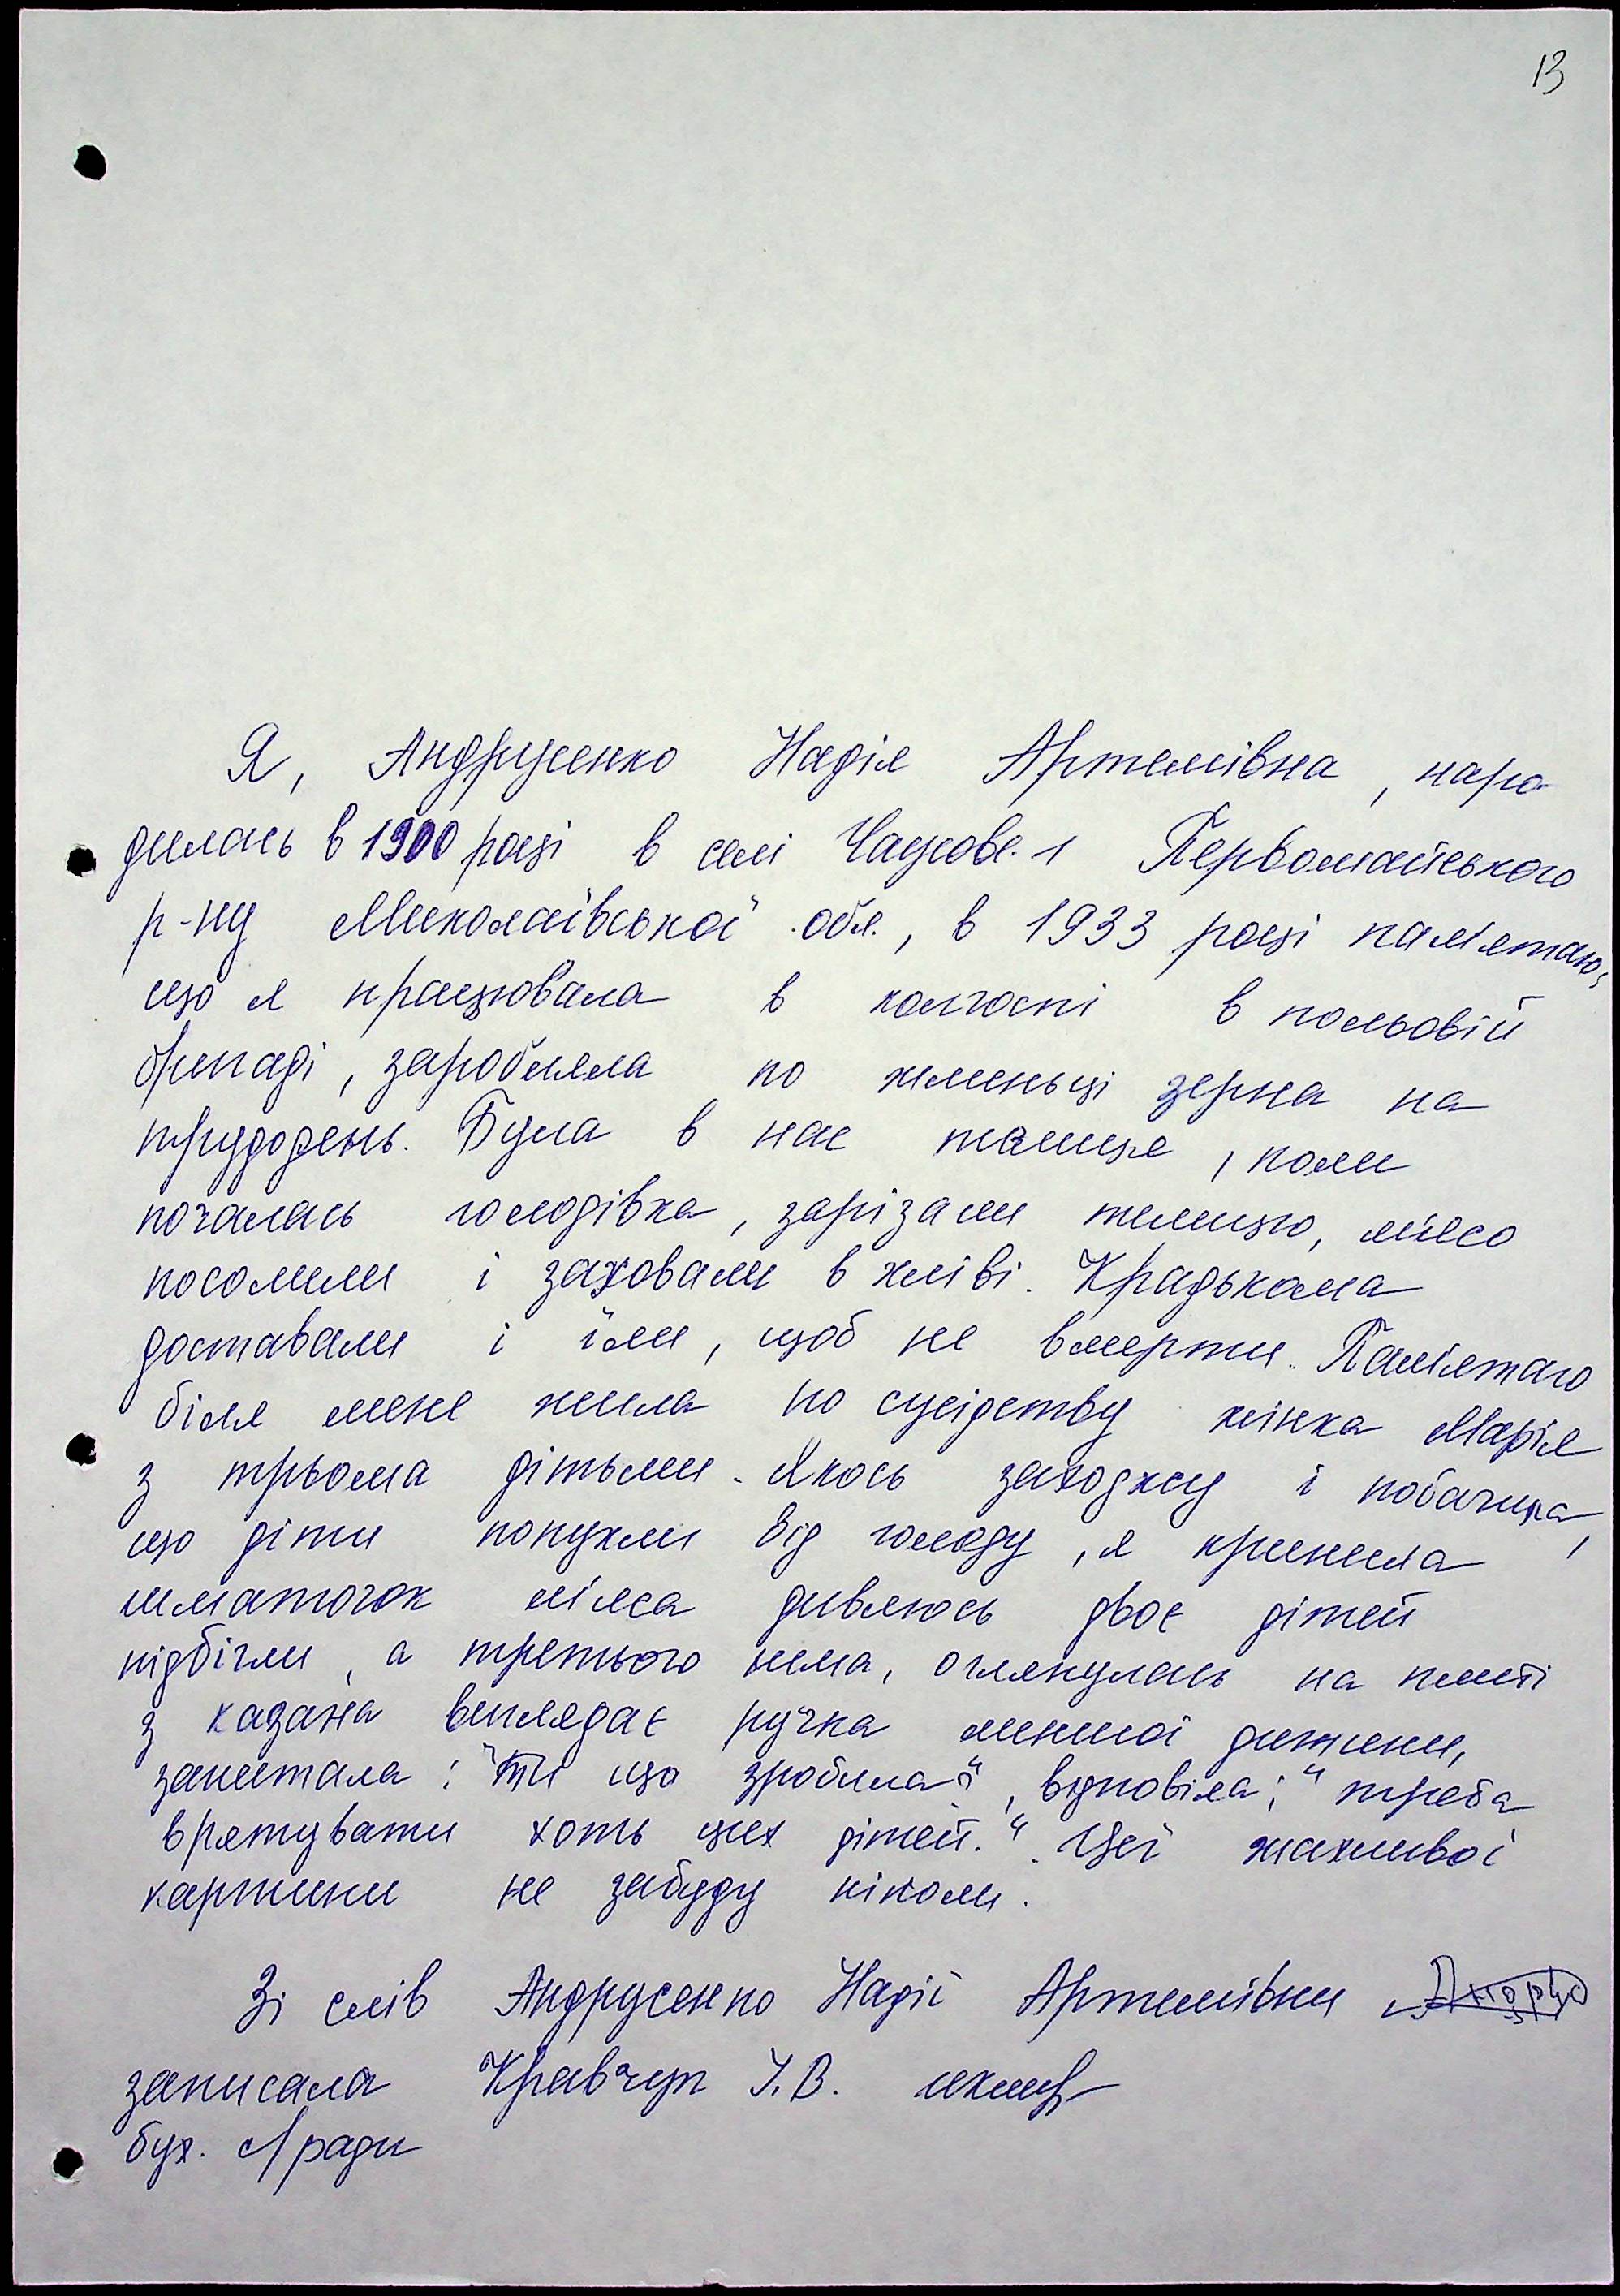 13
Я, Андрусенко Надія Артемівна, наро
дилась в 1900 році в селі Чаусове-1 Первомайського
р-ну Миколаївської обл., в 1933 році пам'ятаю,
що я працювала в колгоспі в польовій
бригаді, заробляла по жменьці зерна на
трудодень. Була в нас телиця, коли
почалась голодівка, зарізали телицю, м'ясо
посолили і заховали в хліві. Крадькома
доставали і їли, щоб не вмерти. Пам'ятаю
біля мене жила по сусідству жінка Марія
з трьома дітьми. Якось заходжу і побачила,
що діти попухли від голоду, я кришила
шматочок м'яса дивлюсь двоє дітей
підбігли, а третього нема, оглянулась на плиті
з казана виглядає ручка меншої дитини,
запитала: "Ти що зробила?", відповіла: "треба
врятувати хоть цих дітей." Цеї жахливої
картини не забуду ніколи.
Зі слів Андрусенко Надії Артемівни
записала Кравчук І.В.
бух. с/ради